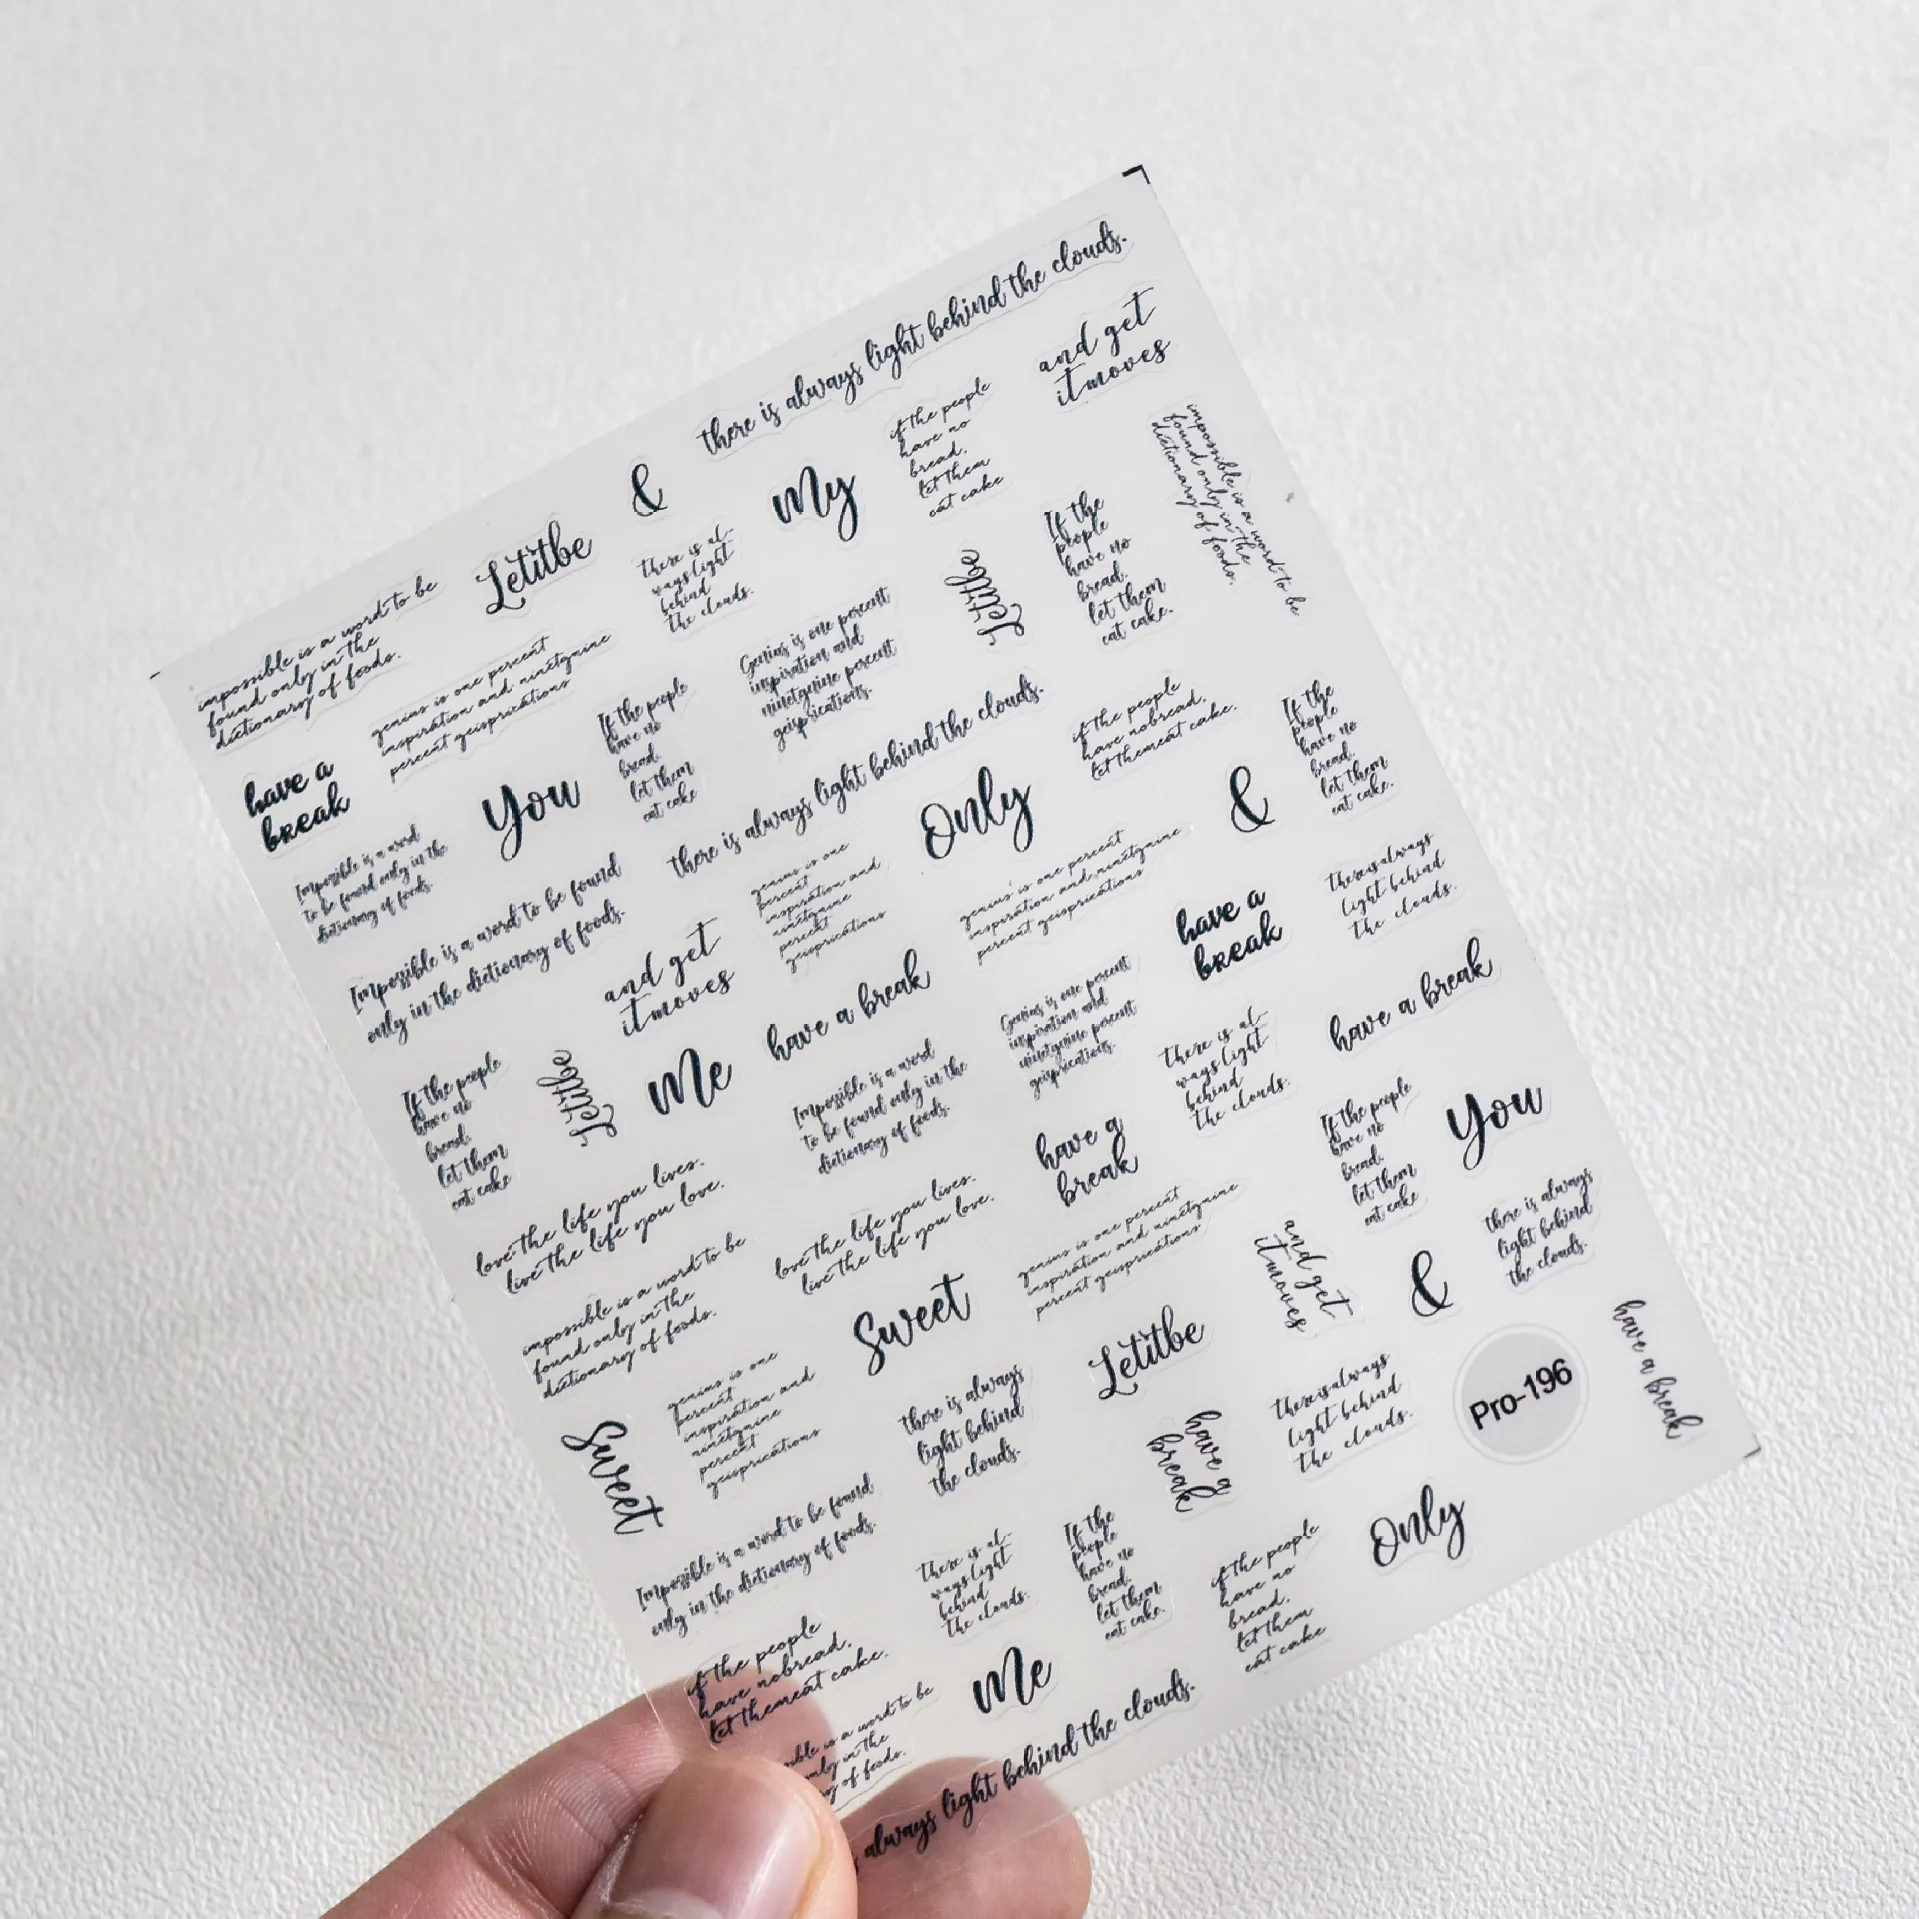 there is always light behind the clouds.
and get
it moves
&
My
if the people
have no
bread,
let them
eat cake
impossible is a word to be
found only in the
dictionary of foods.
Letitbe
there is al-
ways light
behind
the clouds.
Letitbe
If the
people
have no
bread.
let them
eat cake.
impossible is a word to be
found only in the
dictionary of foods.
genius is one percent
inspiration and ninetynine
percent geisprications
Genius is one percent
inspiration and
ninetynine percent
geisprications.
have a
break
You
If the people
have no
bread.
let them
eat cake
there is always light behind the clouds.
if the people
have nobread,
let themeat cake.
If the
people
have no
bread.
let them
eat cake.
Impossible is a word
to be found only in the
dictionary of foods.
Only
&
Impossible is a word to be found
only in the dictionary of foods.
genius is one
percent
inspiration and
ninetynine
percent
geisprications
genius is one percent
inspiration and ninetynine
percent geisprications
have a
break
thereisalways
light behind
the clouds.
and get
it moves
have a break
Genius is one percent
inspiration and
ninetynine percent
geisprications.
there is al-
ways light
behind
the clouds.
have a break
If the people
have no
bread.
let them
eat cake
Letitbe
Me
Impossible is a word
to be found only in the
dictionary of foods.
have a
break
If the people
have no
bread.
let them
eat cake
You
love the life you lives.
live the life you love.
love the life you lives.
live the life you love.
genius is one percent
inspiration and ninetynine
percent geisprications
and get
it moves
&
there is always
light behind
the clouds.
impossible is a word to be
found only in the
dictionary of foods.
Sweet
Letitbe
have a break
Sweet
genius is one
percent
inspiration and
ninetynine
percent
geisprications
there is always
light behind
the clouds.
have a
break
thereisalways
light behind
the clouds.
Pro-196
Impossible is a word to be found
only in the dictionary of foods.
there is al-
ways light
behind
the clouds.
If the
people
have no
bread.
let them
eat cake.
if the people
have no
bread,
let them
eat cake
Only
if the people
have nobread,
let themeat cake.
is a word to be
in the
of foods.
Me
always light behind the clouds.